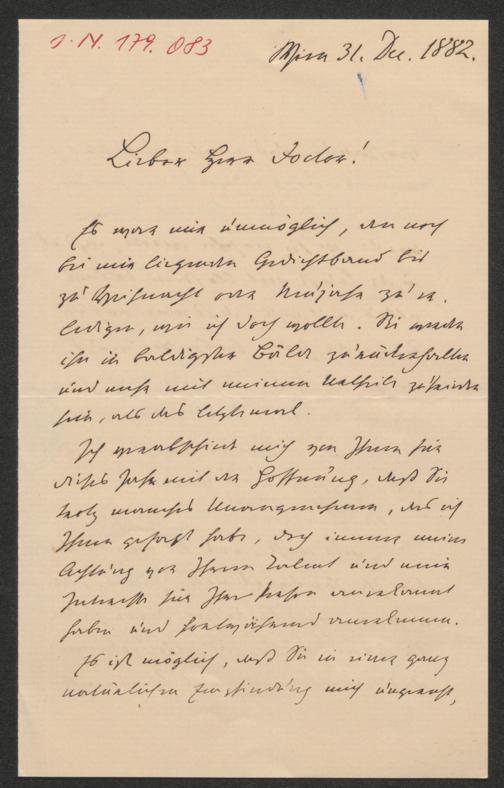 J. N. 179.083
Wien 31. Dec. 1882.
Lieber Herr Doctor!
Es war mir unmöglich, den noch
bei mir liegenden Gedichtband bis
zu Weihnacht oder Neujahr zu er-
ledigen, wie ich doch wollte. Sie werden
ihn in baldigster Bälde zurückerhalten
und mehr mit meinem Urtheile zufrieden
sein, als das letztemal.
Ich verabschiede mich von Ihnen für
dieses Jahr mit der Hoffnung, daß Sie
trotz manches Unangenehmen, das ich
Ihnen gesagt habe, doch immer meine
Achtung vor Ihrem Talent und mein
Interesse für Ihre Person anerkannt
haben und fortwährend anerkennen.
Es ist möglich, daß Sie in einer ganz
natürlichen Empfindung mich ungerecht,